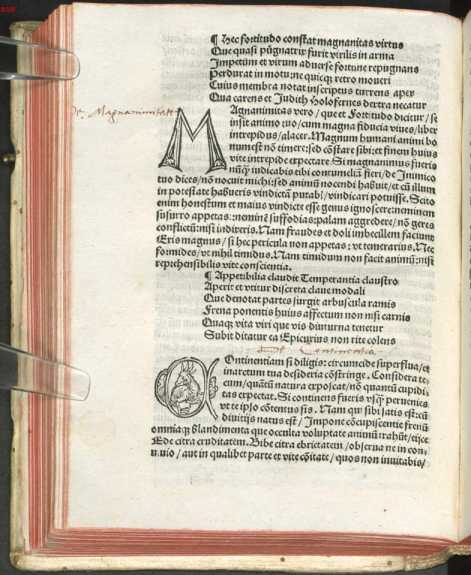 ¶ Hec fortitudo constat magnanitas virtus
Que quasi pūgnatrix furit virilis in arma
Impetum et virum aduerse fortune repugnans
Perdurat in motu: nc quicq̄ retro moueri
Cuius membra notat inscriptus turrens apex
Qua carens et Judith Holofernes dextra necatur
De Magnanimitate
MAgnanimitas vero / que et Fortitudo dicitur / se
insit animo tuo / cum magna fiducia viues / liber
intrepidus / alacer. Magnum humani animi bo
num est nō timere: sed cōstare sibi: et finem huius
vite intrepide expectare. Si magnanimus fueris
nūq̄ iudicabis tibi contumeliā fieri / de Inimico
tuo dices / nō nocuit michi: sed animū nocendi habuit / et cū illum
in potestate habueris vindictā putabis / vindicari potuisse. Scito
enim honestum et maius vindicte esse genus ignoscere: neminem
susurro appetas: neminē suffodias: palam aggredere / nō geres
conflictū: nisi indixeris. Nam fraudes et doli imbecillem faciunt
Eris magnus / si hec pericula non appetas: vt temerarius. Nec
formides / vt nihil timidus. Nam timidum non facit animū: nisi
reprehensibilis vite conscientia.
¶ Appetibilia claudit Temperantia claustro
Aperit et vtitur discreta claue modali
Que denotat partes surgit arbuscula ramis
Frena ponentis huius affectum non nisi carnis
Quaq̄ vita viri que vis diuturna tenetur
Subit ditatur ea Epicurius non rite colens
De Continentia
COntinentiam si diligis: circumcide superflua / et
in arctum tua desideria cōstringe. Considera te
cum / quātū natura exposcat / nō quantū cupidi
tas expectat. Si continens fueris vsq̄ peruenies
vt te ipso cōtentus sis. Nam qui sibi satis est: cū
diuitijs natus est / Impone cōcupiscentie frenū
omniaq̄ blandimenta que occulta voluptate animū trahūt / eijce
Ede citra cruditatem. Bibe citra ebrietatem / obserua ne in con-
uiuio / aut in qualibet parte et vite cōitate / quos non imitabis /